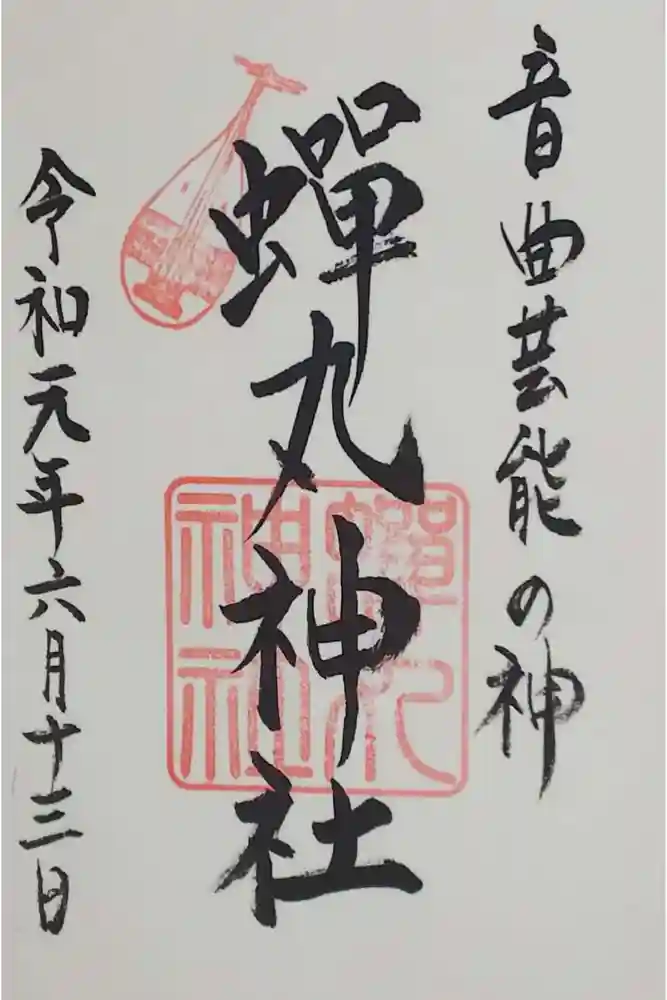 音曲芸能の神
蝉丸神社
蝉丸神社
令和元年六月十三日